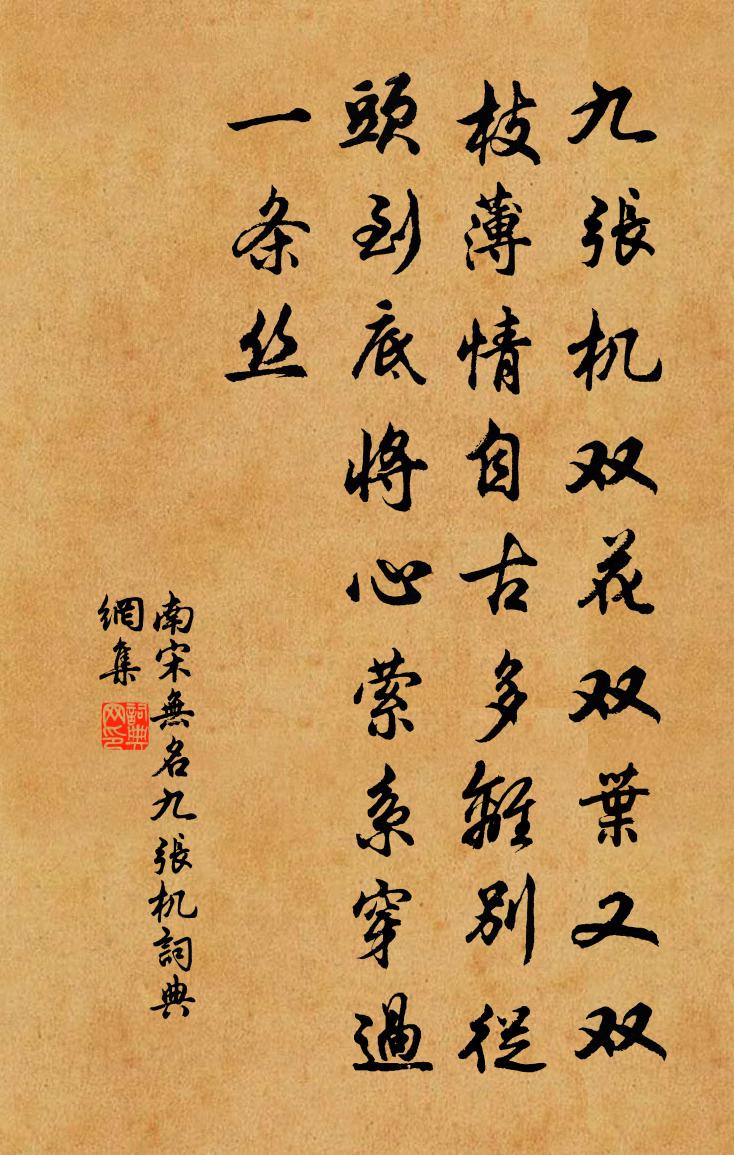 九張机双花双葉又双
枝薄情自古多離別從
頭到底將心萦系穿過
一条丝
南宋無名九張机詞典
網集
詞典
网印